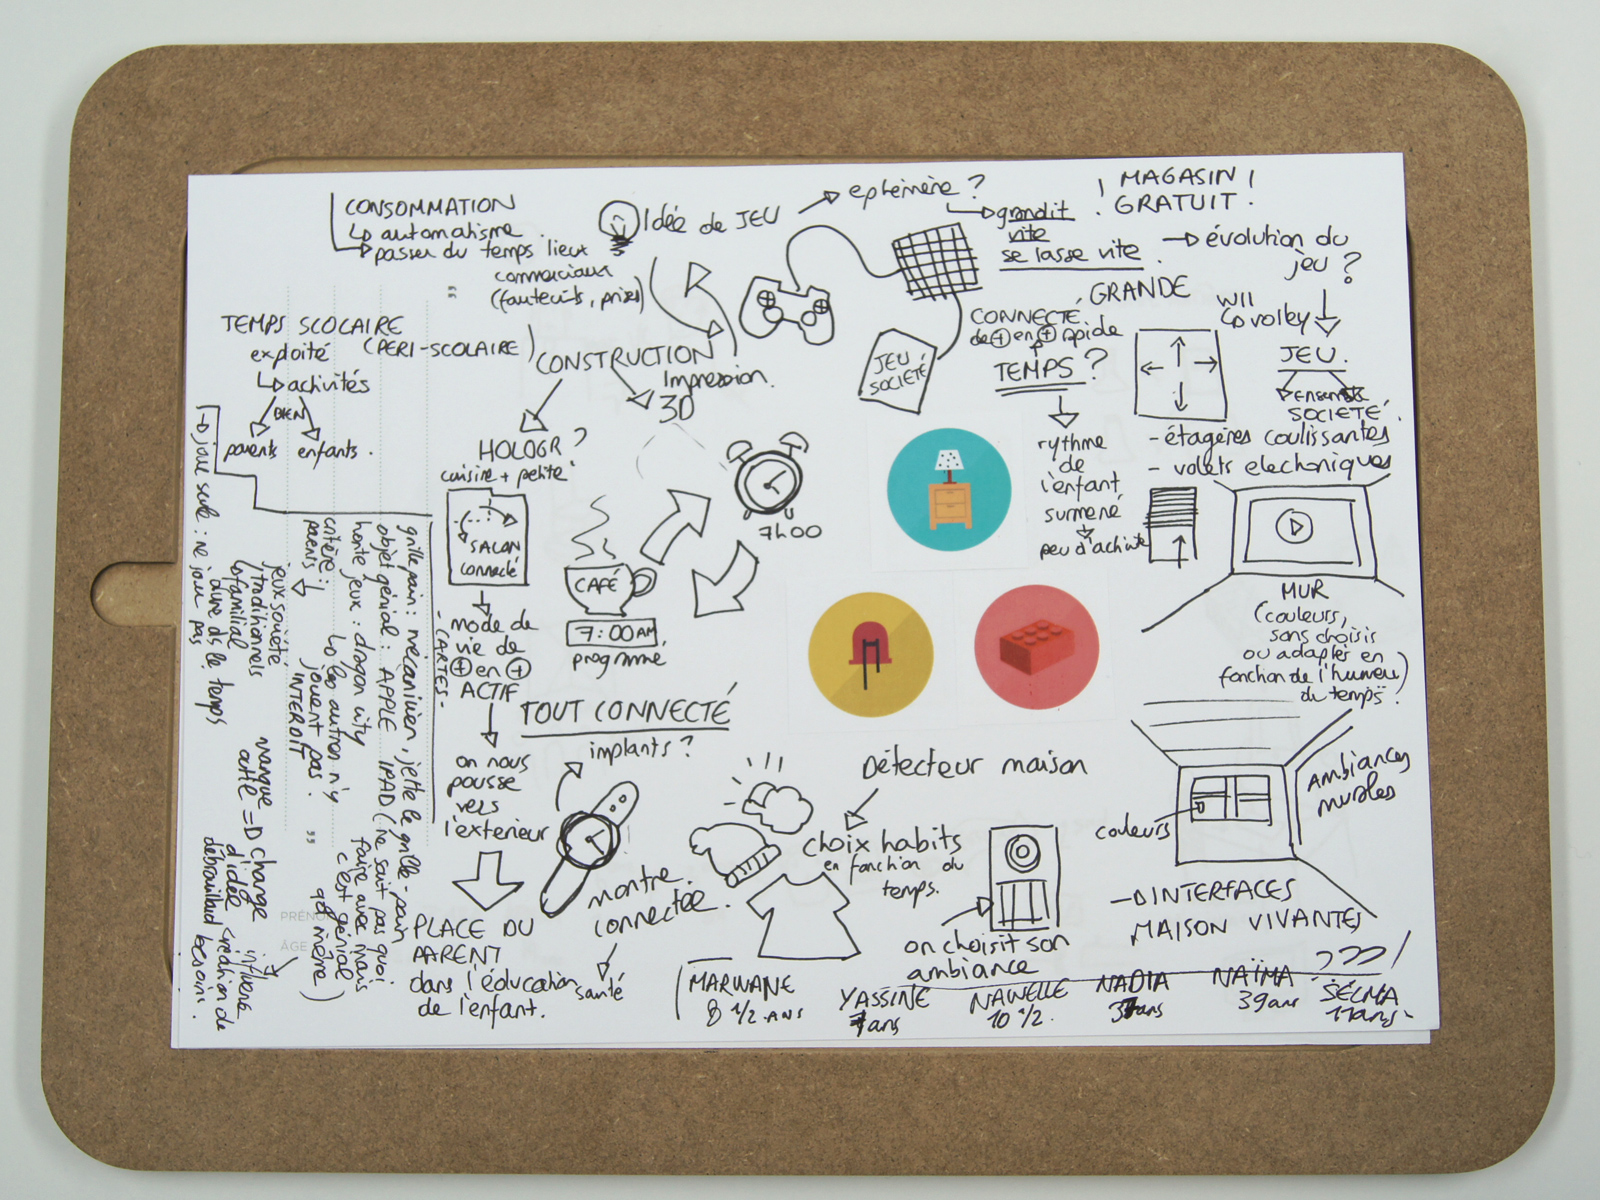 CONSOMMATION
↳ automatisme
→ passer du temps lieux
commerciaux
(fauteuils, prises)
Idée de JEU
→ ephémère ?
→ grandit
vite
se lasse vite.
! MAGASIN !
! GRATUIT !
→ évolution du
jeu ?
WII
↳ volley
JEU.
ensemble
SOCIÉTÉ.
TEMPS SCOLAIRE
exploité (PERI-SCOLAIRE)
↳ activités
BIEN
parents enfants.
CONSTRUCTION
Impression
3D
HOLOGR ?
cuisine + petite
SALON
connecté
mode de
vie de
+ en +
ACTIF
- CARTES -
on nous
pousse
vers
l'extérieur
PLACE DU
PARENT
dans l'éducation
de l'enfant.
JEU
SOCIÉTÉ
CONNECTÉ
de + en + rapide
TEMPS ?
rythme
de
l'enfant
surmené
peu d'activité
GRANDE
- étagères coulissantes
- volets electroniques
MUR
(couleurs,
sans choisis
ou adaptés en
fonction de l'humeur)
du temps.
7h00
CAFÉ
7:00 AM
programmé.
TOUT CONNECTÉ
implants ?
montre
connectée.
santé
Détecteur maison
choix habits
en fonction du
temps.
on choisit son
ambiance
couleurs
AMBIANCES
murales
→ INTERFACES
MAISON VIVANTES
???
grille pain : mécanicien, jette le grille-pain
objet génial : APPLE IPAD (ne sait pas quoi
faire avec mais
c'est génial
qd même)
honte jeux : dragon city
↳ les autres n'y
jouent pas.
critère :
parents → INTERDIT
"
"
jeux société
traditionnels
↳ familial
dure ds le temps
→ joue seule : ne joue pas
manque
outil ⇒ change
d'idée
débrouillard
influence
création de
besoins.
PRÉNOM
ÂGE
MARWANE
8 1/2 ANS
YASSINE
7 ans
NAWELLE
10 1/2.
NADIA
37 ans
NAÏMA
39 ans
SELMA
11 ans